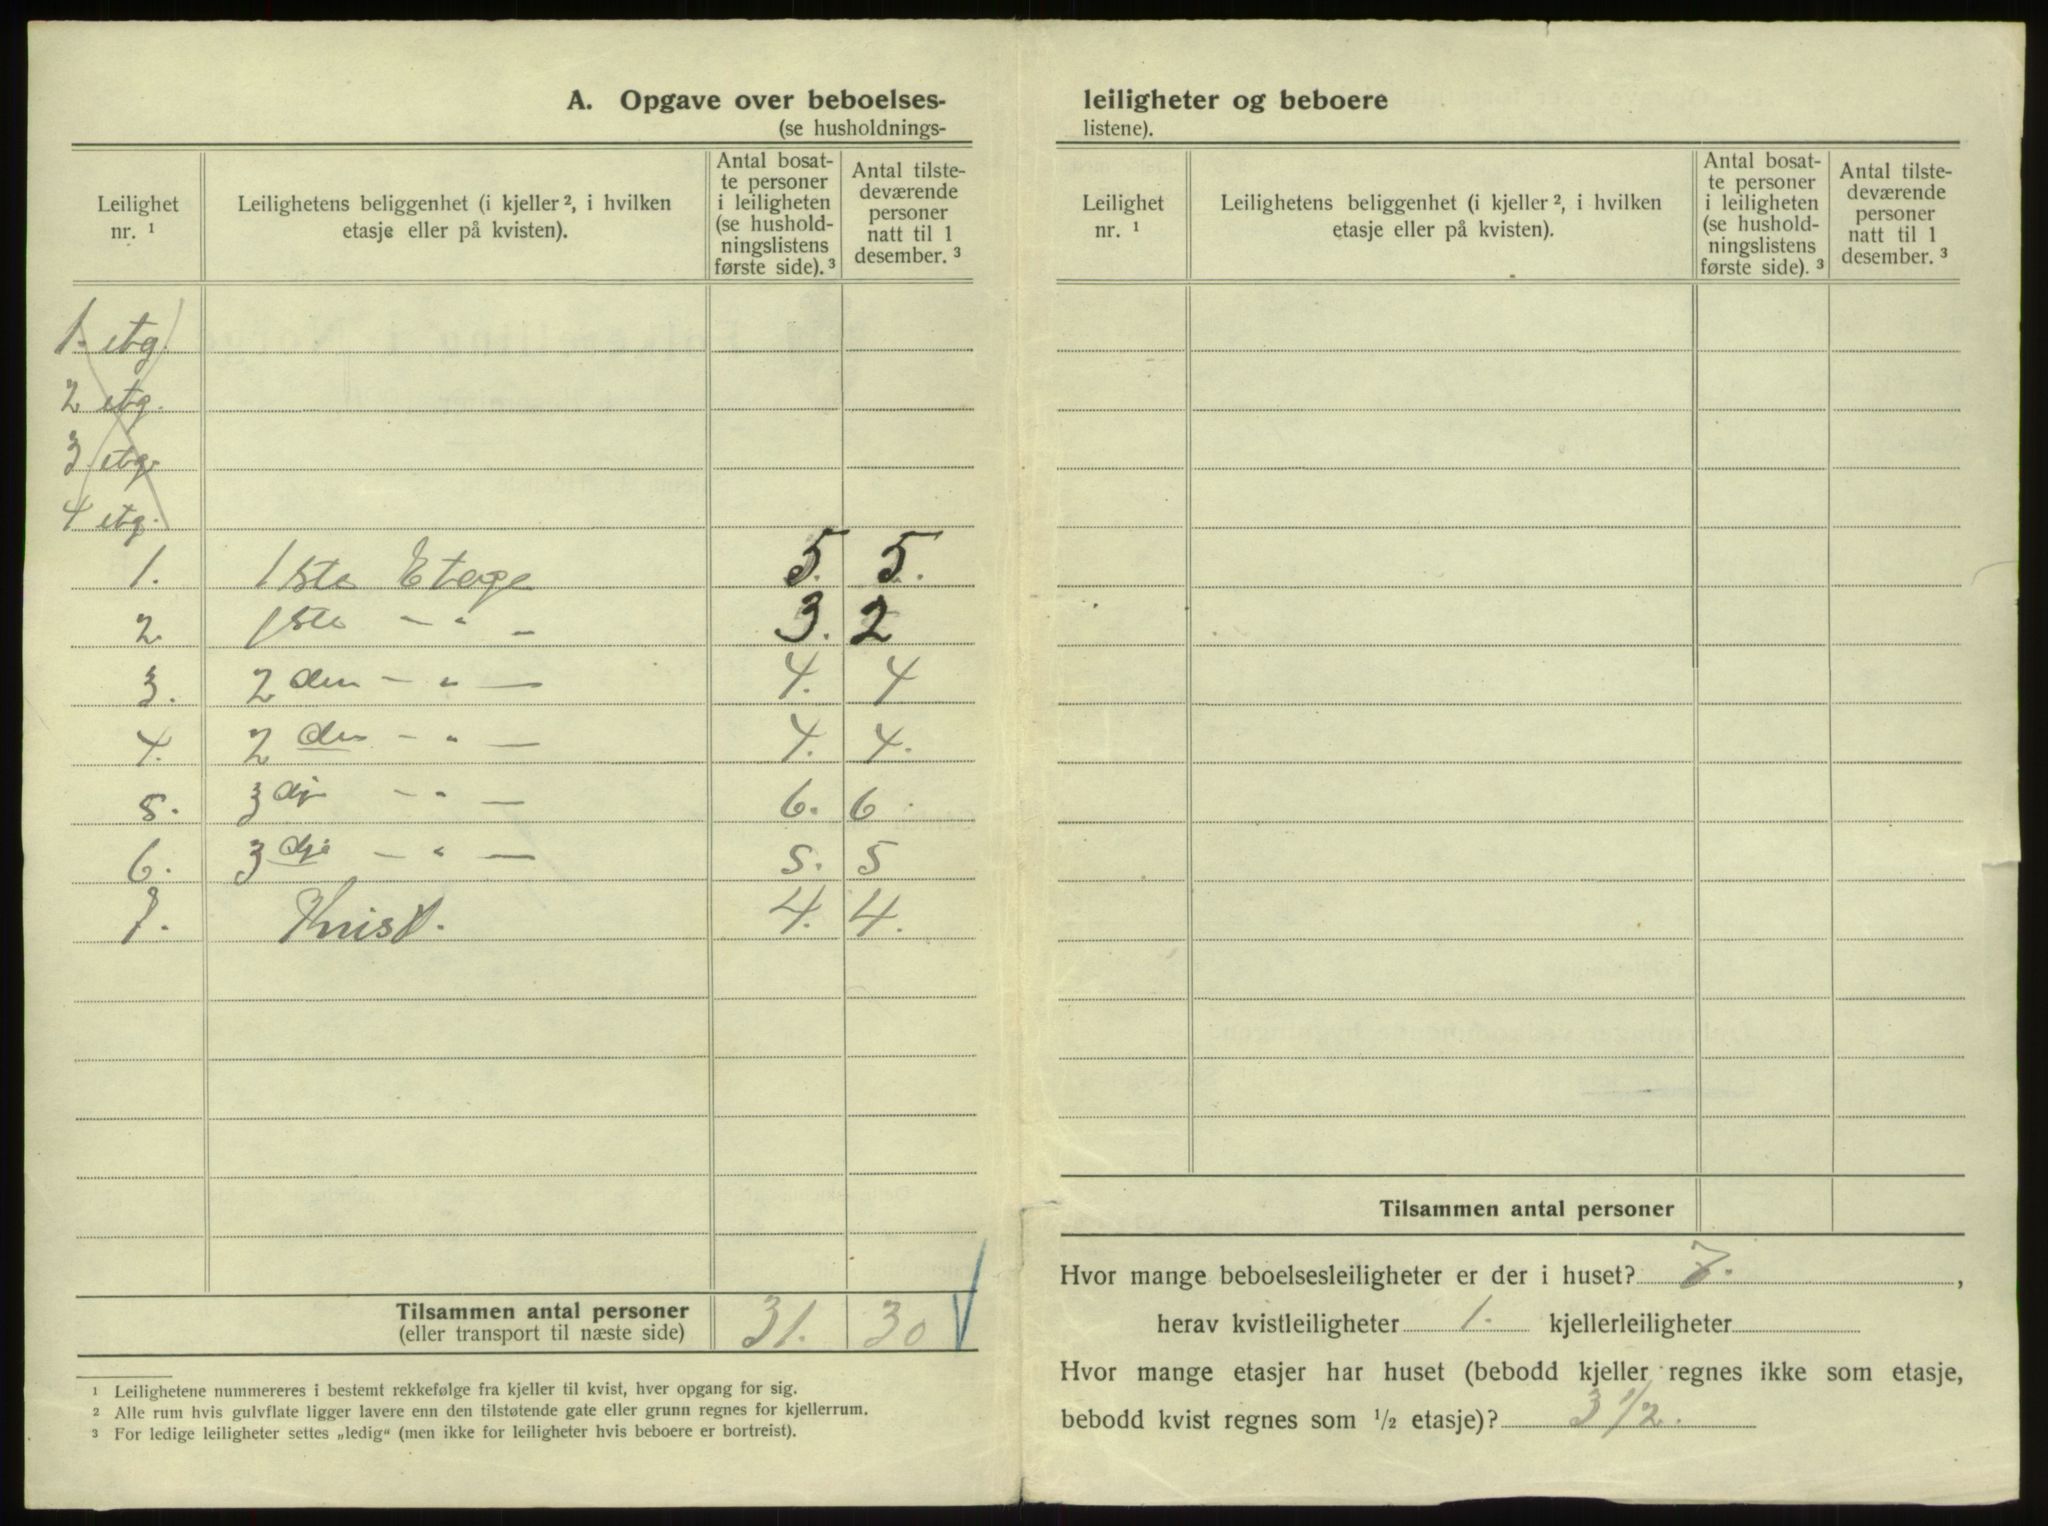 A. Opgave over beboelses-
(se husholdnings-
Leilighet nr. ¹
Leilighetens beliggenhet (i kjeller ², i hvilken etasje eller på kvisten).
Antal bosat-
te personer
i leiligheten
(se hushold-
ningslistens
første side). ³
Antal tilste-
deværende
personer
natt til 1
desember. ³
1. etg.
2 etg.
3 etg.
4 etg.
1. 1ste Etage 5. 5.
2. 1ste - " - 3. 2
3. 2 den - " - 4. 4
4. 2 den - " - 4. 4.
5. 3 dje - " - 6. 6.
6. 3 dje - " - 5. 5
7. Kvist. 4. 4.
Tilsammen antal personer 31. 30
(eller transport til næste side)
¹ Leilighetene nummereres i bestemt rekkefølge fra kjeller til kvist, hver opgang for sig.
² Alle rum hvis gulvflate ligger lavere enn den tilstøtende gate eller grunn regnes for kjellerrum.
³ For ledige leiligheter settes „ledig“ (men ikke for leiligheter hvis beboere er bortreist).
leiligheter og beboere
listene).
Leilighet nr. ¹
Leilighetens beliggenhet (i kjeller ², i hvilken etasje eller på kvisten).
Antal bosat-
te personer
i leiligheten
(se hushold-
ningslistens
første side). ³
Antal tilste-
deværende
personer
natt til 1
desember. ³
Tilsammen antal personer
Hvor mange beboelsesleiligheter er der i huset? 7. ,
herav kvistleiligheter 1. kjellerleiligheter
Hvor mange etasjer har huset (bebodd kjeller regnes ikke som etasje,
bebodd kvist regnes som ½ etasje)? 3 1/2.